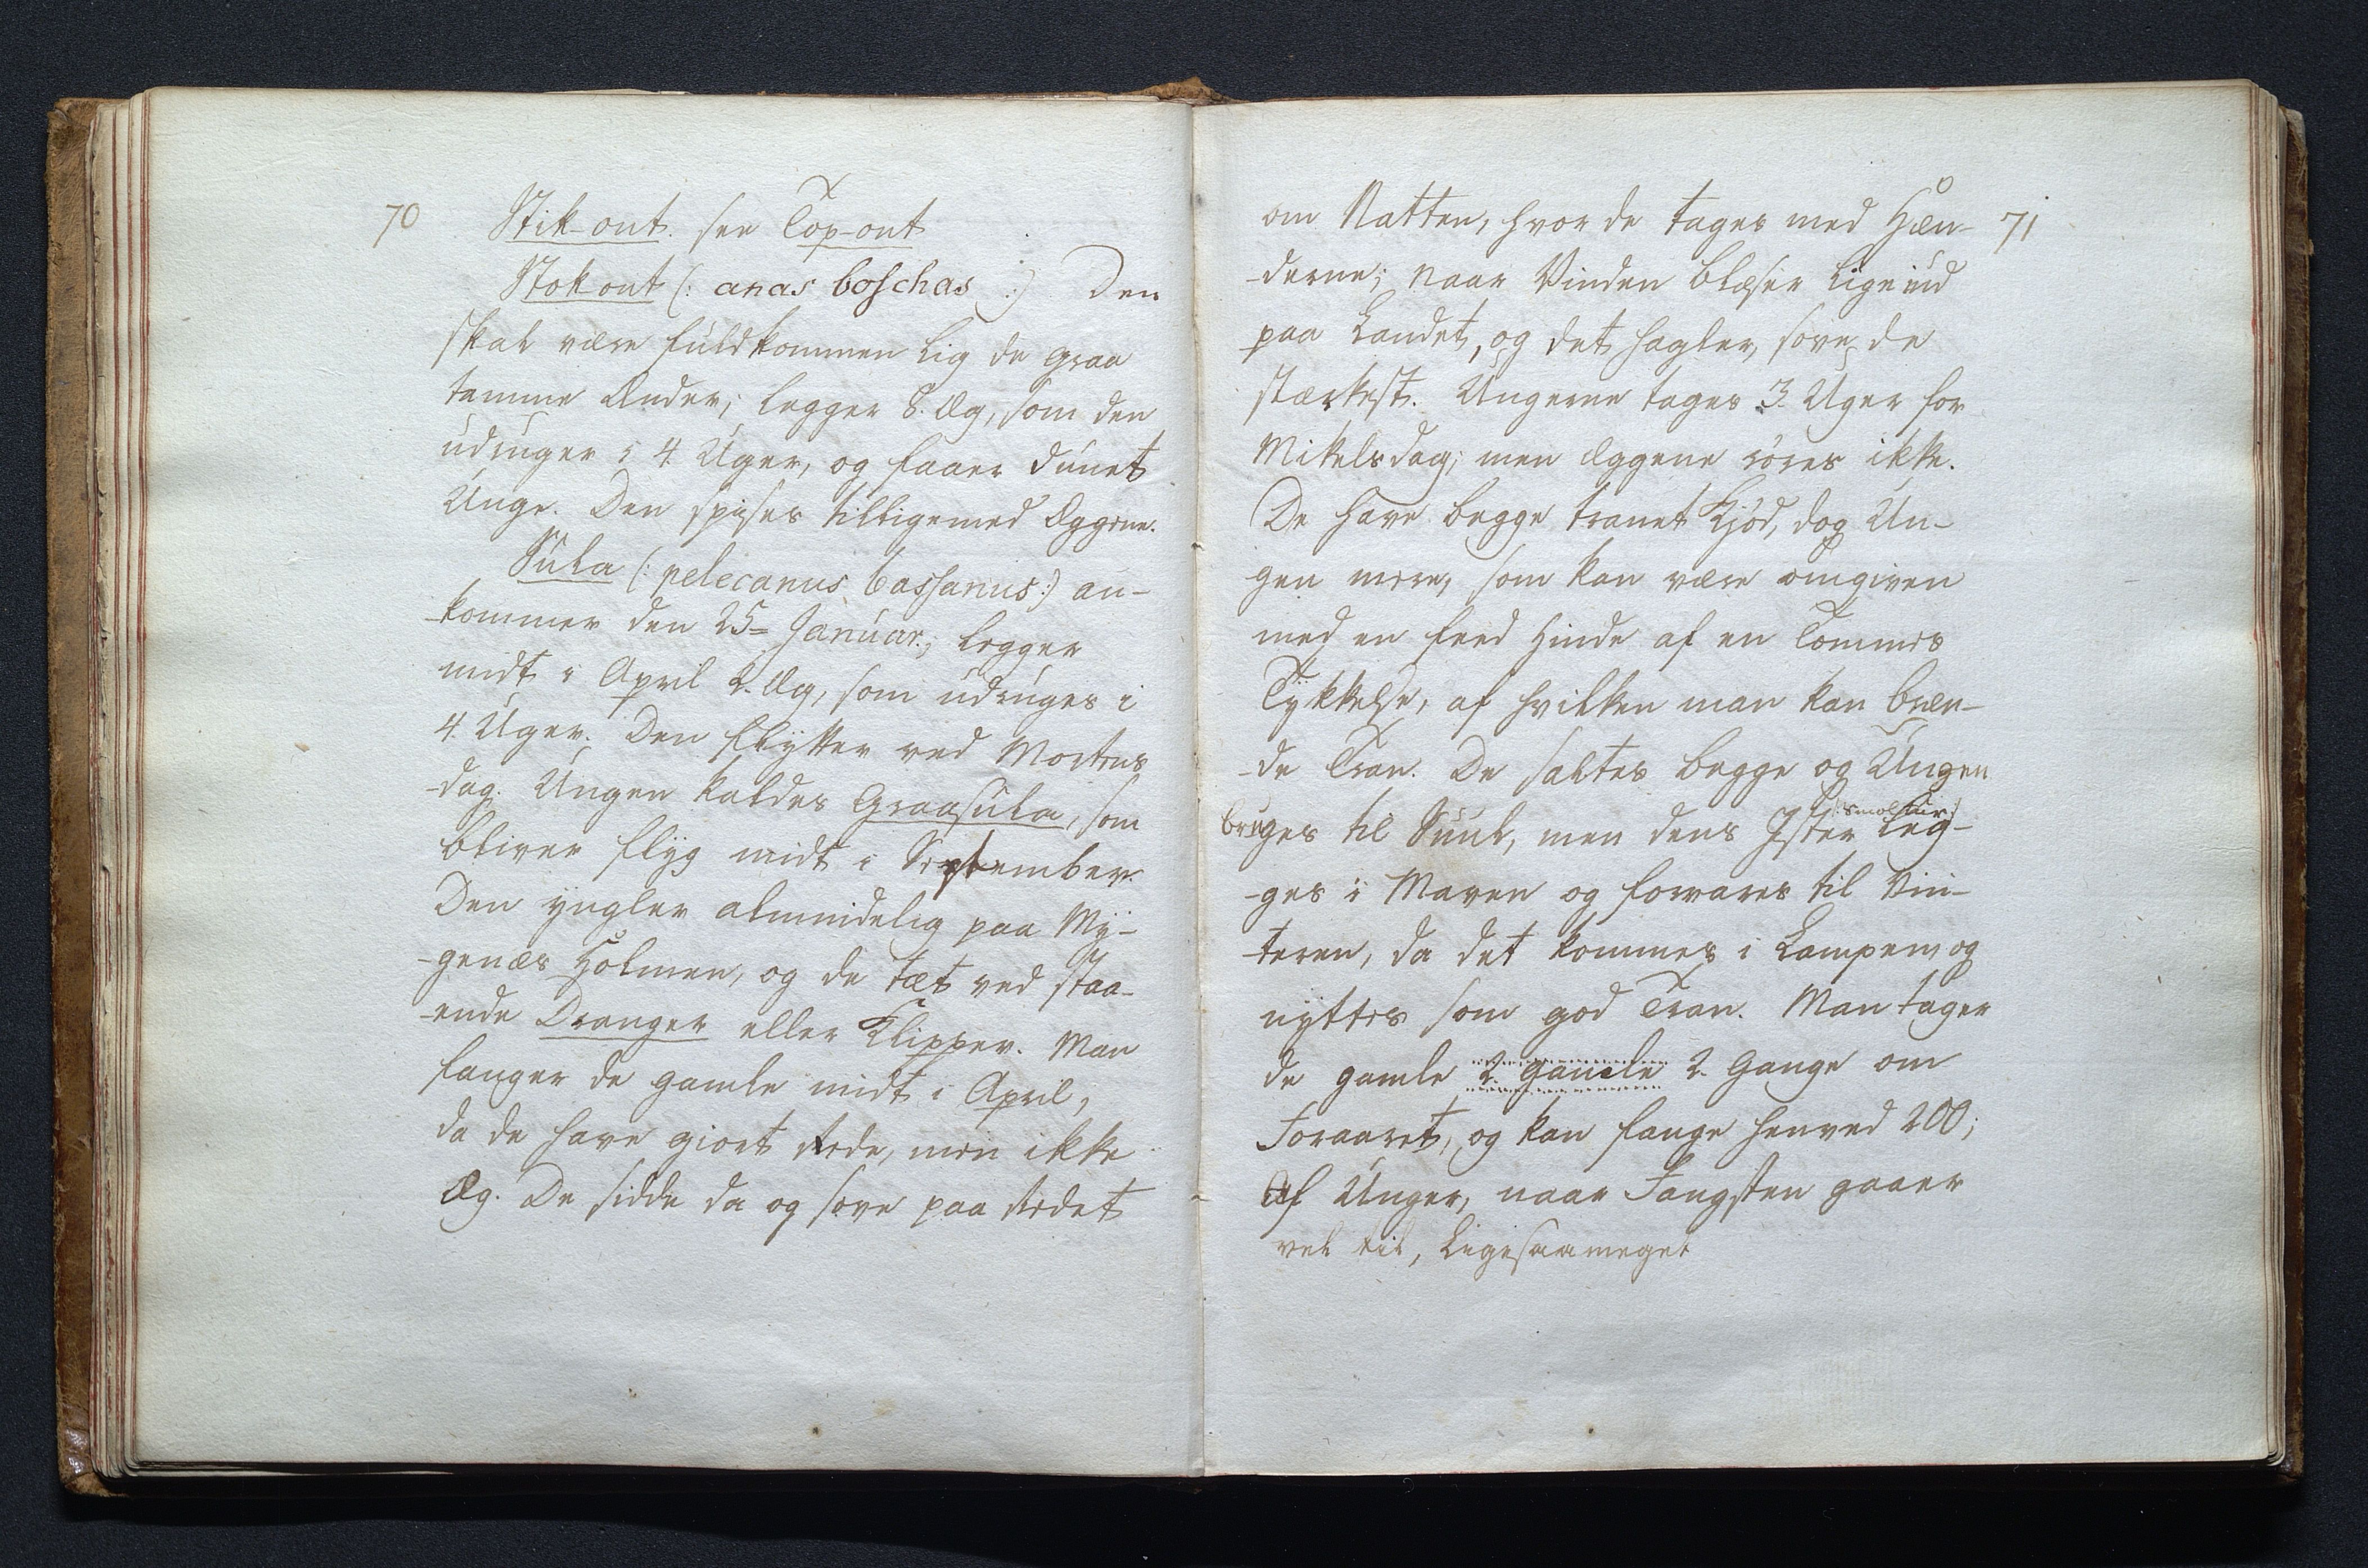 70
Stik-ont. see Top-ont
Stokont (: anas boschas :) Den
skal være fuldkommen lig de graa
tamme Ænder; legger 8. Æg, som den
udruger i 4 Uger, og faaer dunet
Unge. Den spises tilligemed Æggene.
Sula (: pelecanus bassanus :) an-
-kommer den 25= Januar.; legger
midt i April 2. Æg, som udruges i
4. Uger. Den flytter ved Mortens
-dag. Ungen kaldes Graasula, som
bliver flyg midt i September.
Den yngler almindelig paa My-
-genæs Holmen, og de tæt ved staa-
-ende Dranger eller Klipper. Man
fanger de gamle midt i April,
da de have giort Rede, men ikke
Æg. De sidde da og sove paa Redet
71
om Natten, hvor de tages med Hæn-
-derne; naar Vinden blæser lige ind
paa Landet, og det hagler, sove de
stærkest. Ungerne tages 3. Uger for
Mikelsdag; men Æggene røres ikke.
De have begge tranet Kjød, dog Un-
gen mere, som kan være omgiven
med en feed Hinde af en Tommes
Tykkelse, af hvilken man kan bræn-
-de Tran. De saltes begge og Ungen
bruges til Suul, men dens Ister leg-
-ges i Maven og forvares til Vin-
-teren, da det kommes i Lampen, og
nyttes som god Tran. Man tager
de gamle 2. gamle 2. Gange om
Foraaret, og kan fange henved 200;
Af Unger, naar Fangsten gaaer
vel til, ligesaameget